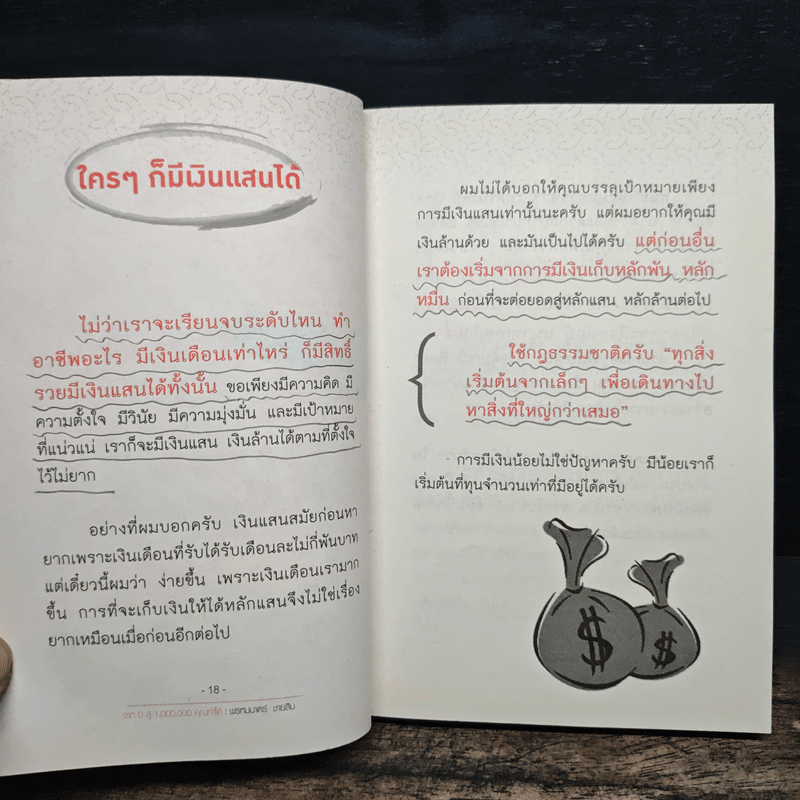 ใครๆ ก็มีเงินแสนได้
ไม่ว่าเราจะเรียนจบระดับไหน ทำ
อาชีพอะไร มีเงินเดือนเท่าไหร่ ก็มีสิทธิ์
รวยมีเงินแสนได้ทั้งนั้น ขอเพียงมีความคิด มี
ความตั้งใจ มีวินัย มีความมุ่งมั่น และมีเป้าหมาย
ที่แน่วแน่ เราก็จะมีเงินแสน เงินล้านได้ตามที่ตั้งใจ
ไว้ไม่ยาก
อย่างที่ผมบอกครับ เงินแสนสมัยก่อนหา
ยากเพราะเงินเดือนที่รับได้รับเดือนละไม่กี่พันบาท
แต่เดี๋ยวนี้ผมว่า ง่ายขึ้น เพราะเงินเดือนเรามาก
ขึ้น การที่จะเก็บเงินให้ได้หลักแสนจึงไม่ใช่เรื่อง
ยากเหมือนเมื่อก่อนอีกต่อไป
- 18 -
จาก 0 สู่ 1,000,000 คุณทำได้ : พรหมมาตร์ ชายสิม
ผมไม่ได้บอกให้คุณบรรลุเป้าหมายเพียง
การมีเงินแสนเท่านั้นนะครับ แต่ผมอยากให้คุณมี
เงินล้านด้วย และมันเป็นไปได้ครับ แต่ก่อนอื่น
เราต้องเริ่มจากการมีเงินเก็บหลักพัน หลัก
หมื่น ก่อนที่จะต่อยอดสู่หลักแสน หลักล้านต่อไป
ใช้กฎธรรมชาติครับ “ทุกสิ่ง
เริ่มต้นจากเล็กๆ เพื่อเดินทางไป
หาสิ่งที่ใหญ่กว่าเสมอ”
การมีเงินน้อยไม่ใช่ปัญหาครับ มีน้อยเราก็
เริ่มต้นที่ทุนจำนวนเท่าที่มีอยู่ได้ครับ
$ $